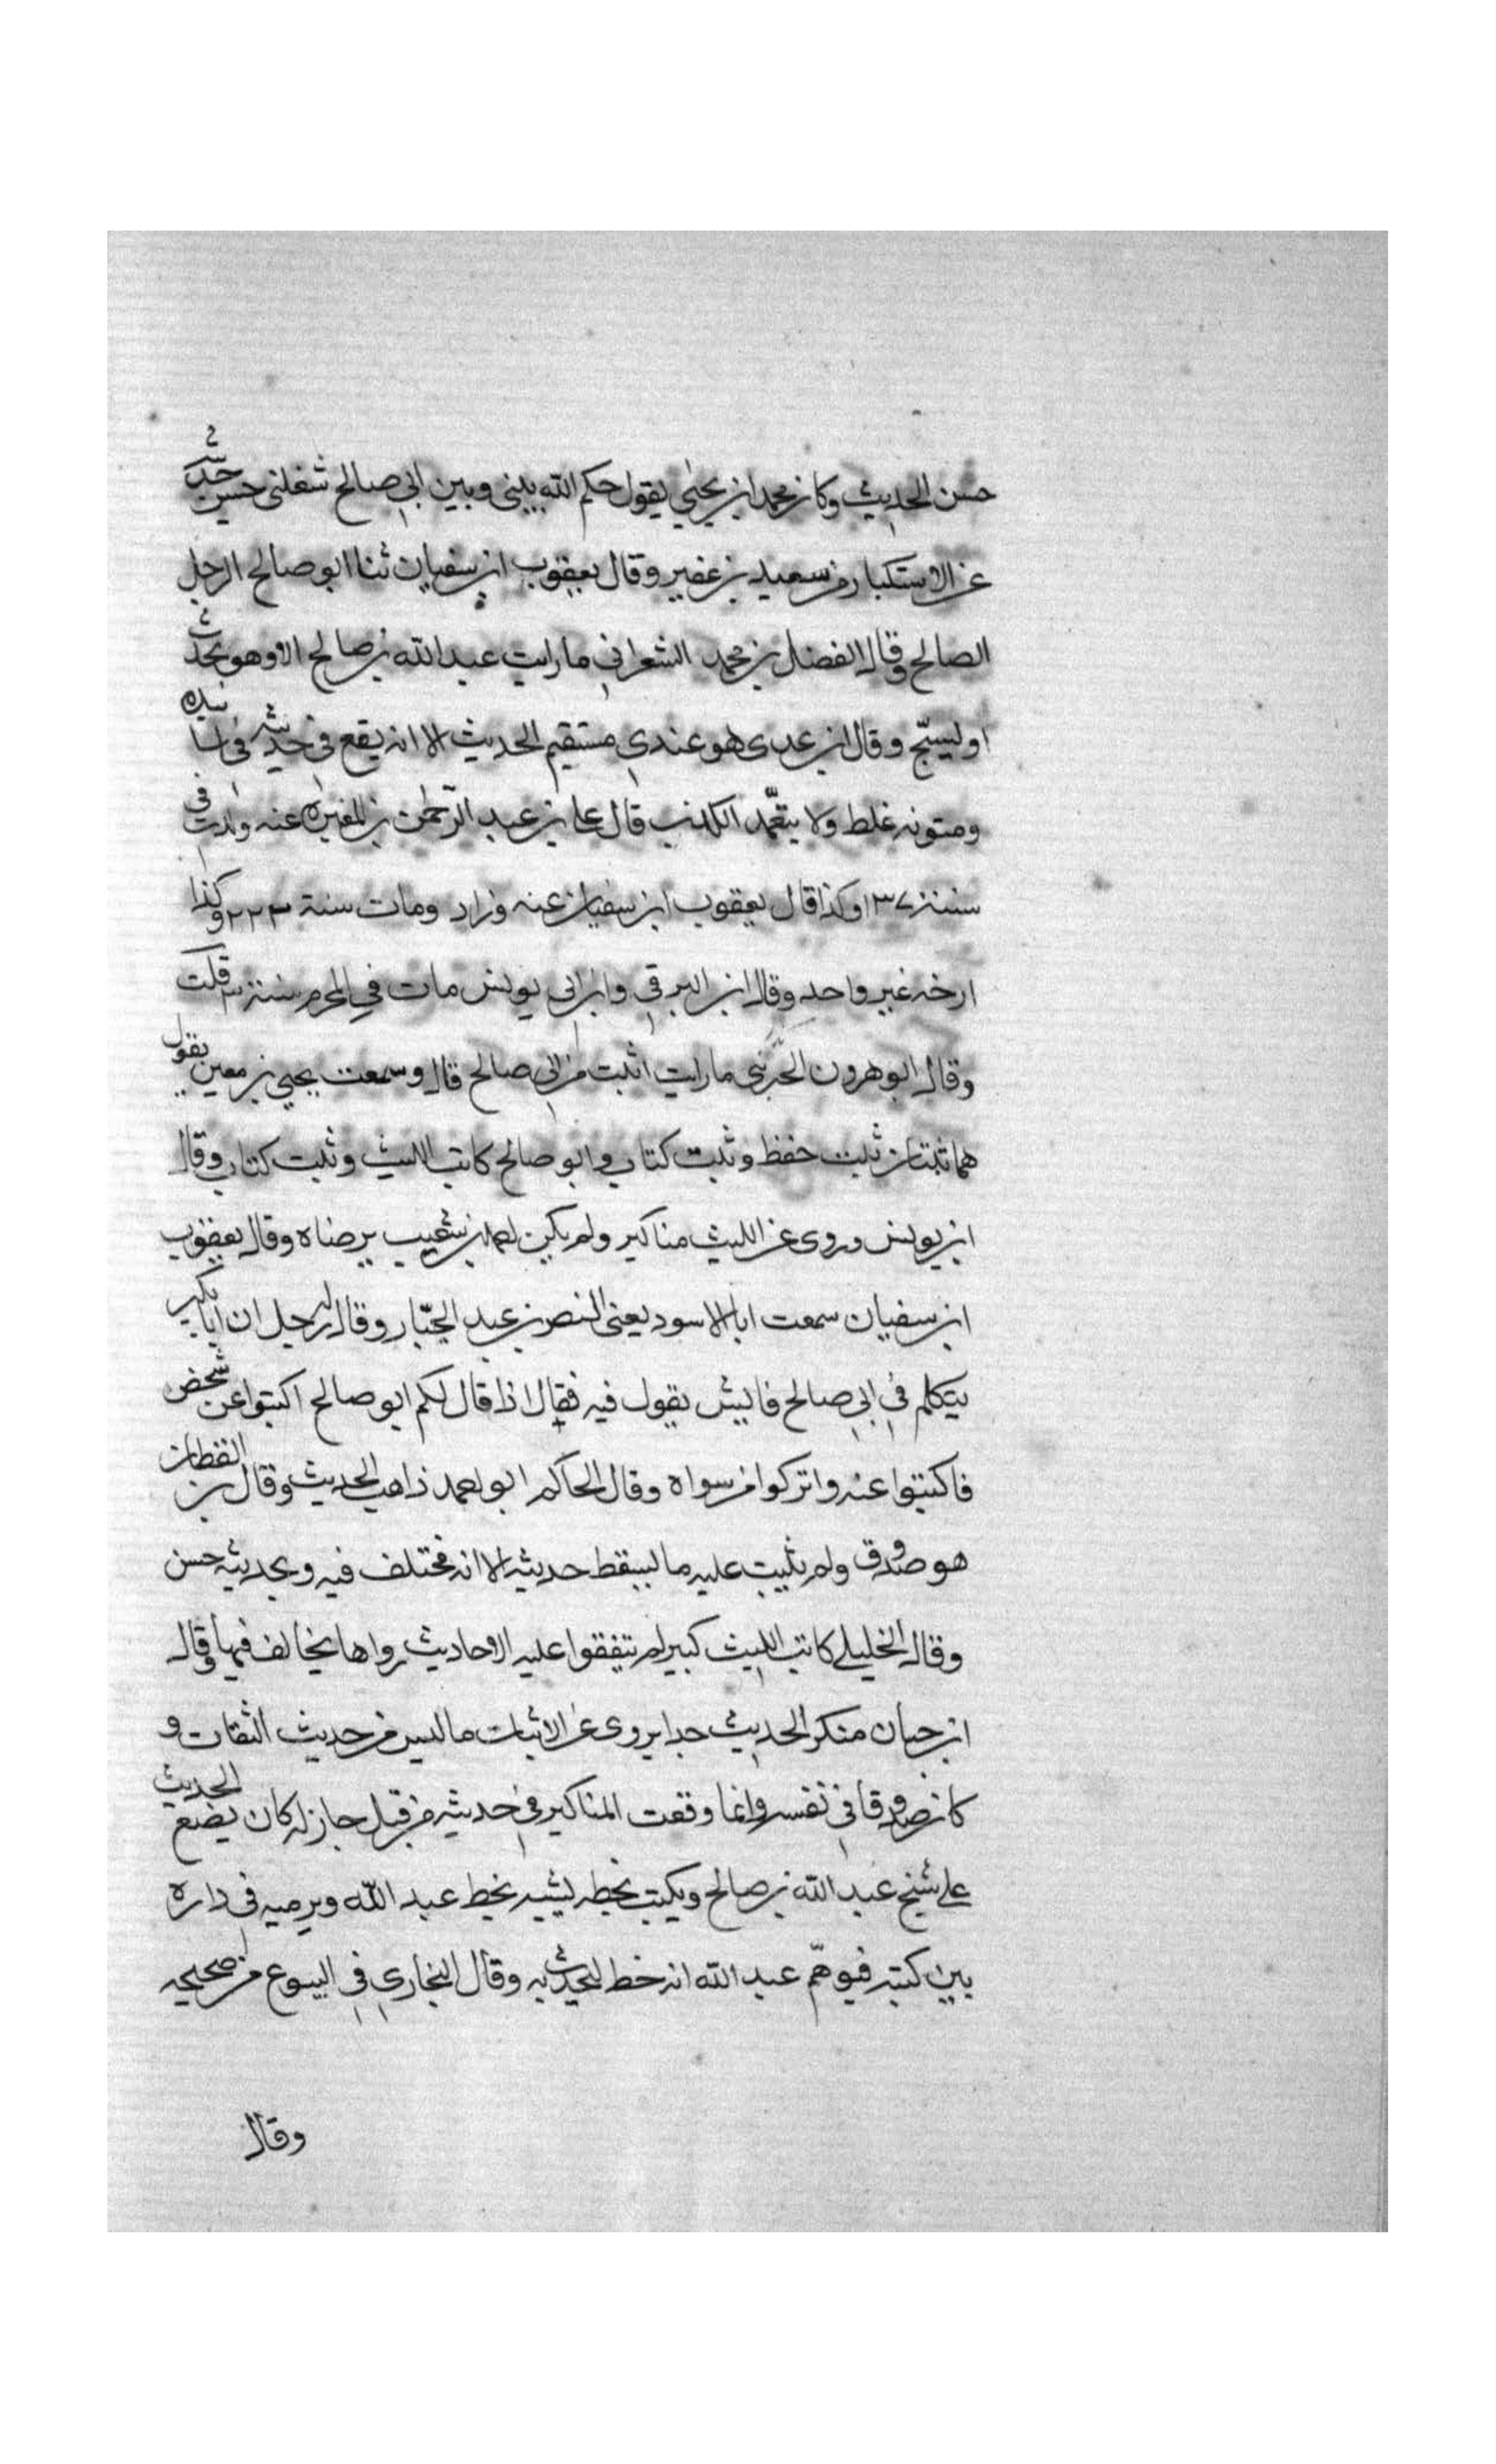 حسن الحديث وكان محمد ابن يحيى يقول حكم الله بيني وبين ابي صالح شغلني حسن حديثه
عن الاستكبار من سعيد بن عفير وقال يعقوب ابن سفيان ثنا ابو صالح الرجل
الصالح وقال الفضل بن محمد الشعراني ما رايت عبد الله بن صالح الا وهو يحدث
او يسبّح وقال ابن عدى هو عندي مستقيم الحديث الا انه يقع في حديثه في اسانيده
ومتونه غلط ولا يتعمّد الكذب قال علي بن عبد الرّحمن بن المغيرة عنه ولدت في
سنة ١٣٧ وكذا قال يعقوب ابن سفيان عنه وزاد ومات سنة ٢٢٣ وكذا
ارخه غير واحد وقال ابن البرقي وابن ابي يونس مات في المحرم سنة ٣ قلت
وقال ابو هرون الخريبي ما رايت اثبت من ابي صالح قال وسمعت يحيى بن معين يقول
هما ثبتان ثبت حفظ وثبت كتاب وابو صالح كاتب الليث وثبت كتاب وقال
ابن يونس وروى عن الليث مناكير ولم يكن احمد بن شعيب يرضاه وقال يعقوب
ابن سفيان سمعت ابا الاسود يعني النصر بن عبد الجبّار وقال له رجل ان ابا بكير
يتكلم في ابي صالح فايش يقول فيه فقال اذا قال لكم ابو صالح اكتبوا عن شخص
فاكتبوا عنه واتركوا من سواه وقال الحاكم ابو احمد ذاهب الحديث وقال بن القطان
هو صدوق ولم يثبت عليه ما يسقط حديثه الا انه مختلف فيه وبحديثه حسن
وقال الخليلي كاتب الليث كبير لم يتفقوا عليه الاحاديث رواها يخالف فيها وقال
ابن حبان منكر الحديث جدا يروى عن الاثبات ما ليس من حديث الثقات و
كان صدوقا في نفسه وانما وقعت المناكير في حديثه من قبل جار له كان يضع الحديث
على شيخ عبد الله بن صالح ويكتب بخطه يشبه بخط عبد الله ويرميه في داره
بين كتبه فيوهّم عبد الله انه خط ليحدث به وقال البخاري في البيوع من صحيحه
وقال